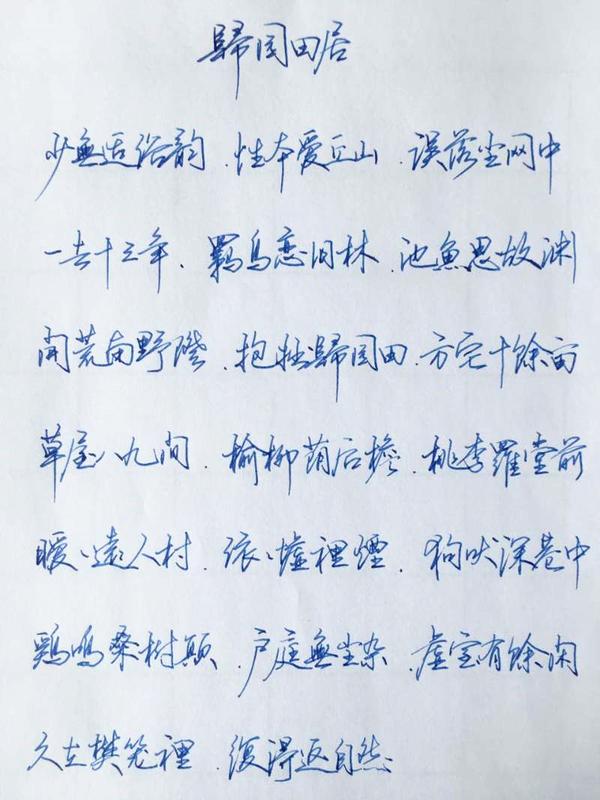 歸园田居
少無适俗韵.性本爱丘山.误落尘网中
一去十三年.羁鸟恋旧林.池魚思故渊
闲荒南野際.抱拙歸园田.方宅十餘亩
草屋八九间.榆柳荫后檐.桃李羅堂前
暖、遠人村.依、墟裡煙.狗吠深巷中
鶏鳴桑树颠.户庭無尘杂.虚室有餘闲
久在樊笼裡.復得返自然